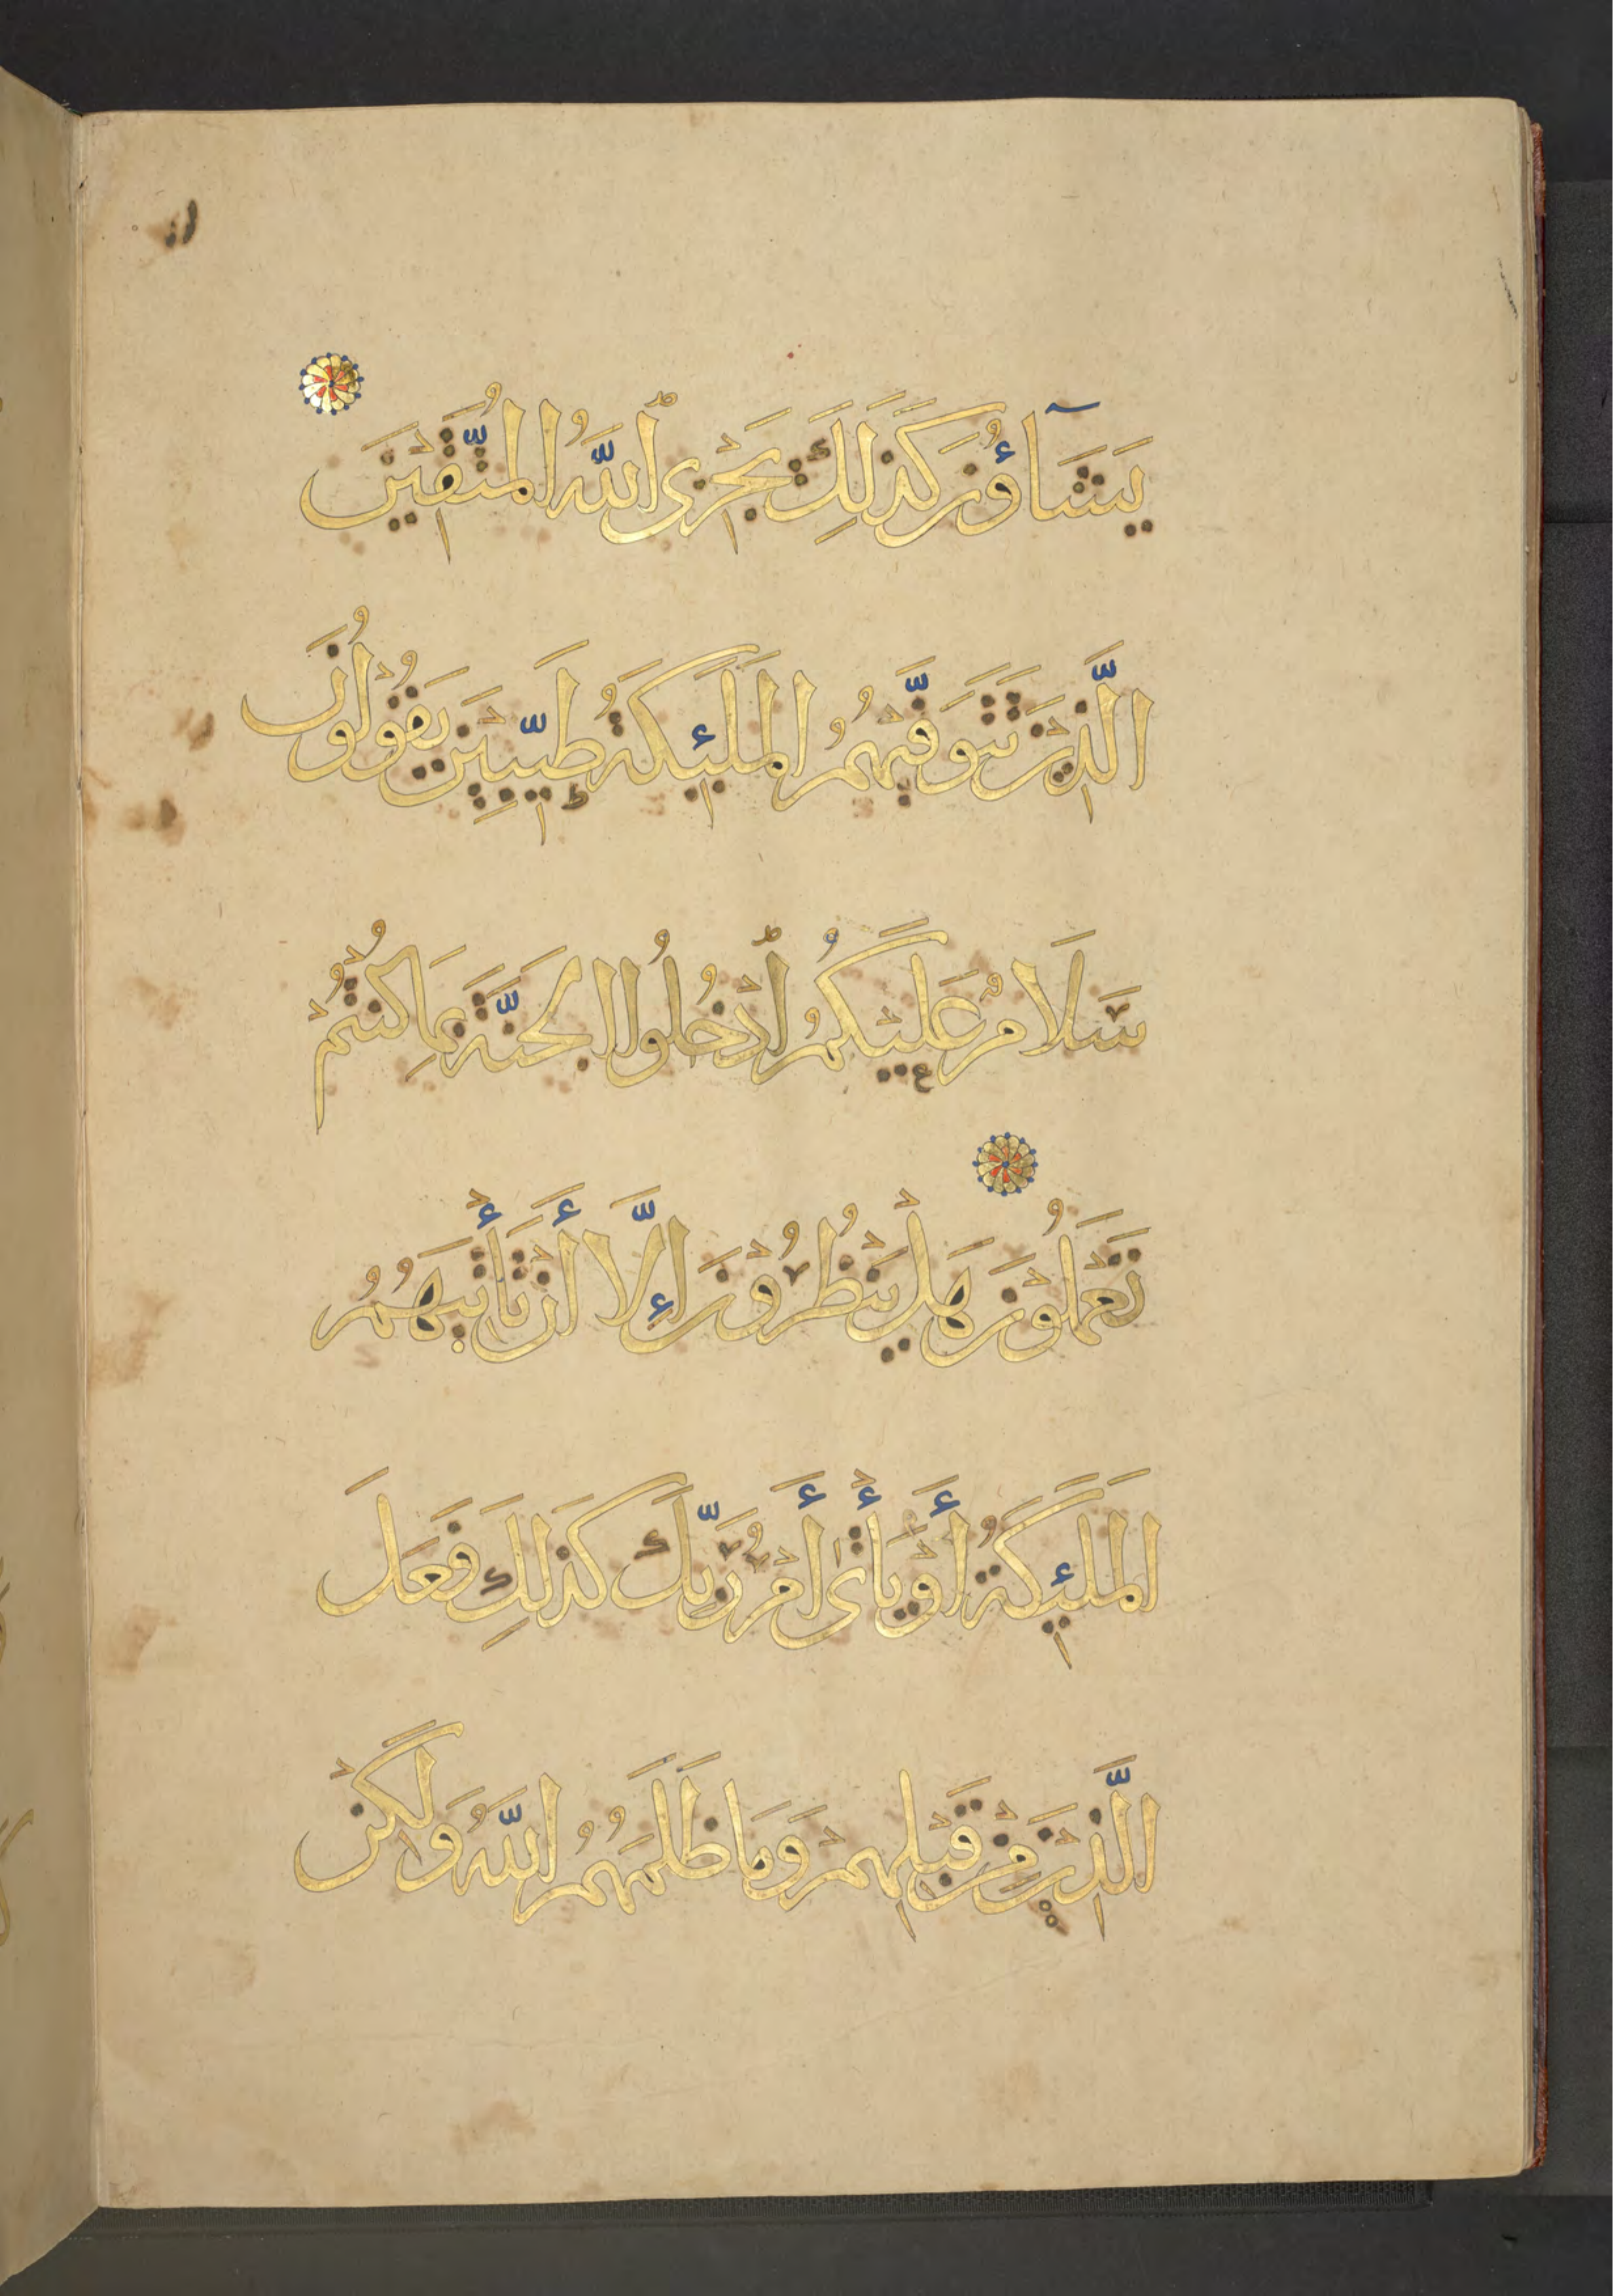 يَشَآؤُنَ كَذَلِكَ يَجْزِى ٱللَّهُ الْمُتَّقِيْنَ
الَّذِيْنَ تَتَوَفَّيٰهُمُ الْمَلَئِكَةُ طَيِّبِيْنَ يَقُوْلُوْنَ
سَلَامٌ عَلَيْكُمُ ٱدْخُلُوا الْجَنَّةَ بِمَا كُنْتُمْ
تَعْمَلُوْنَ هَلْ يَنْظُرُوْنَ إِلَّا أَنْ تَأْتِيَهُمُ
الْمَلَئِكَةُ أَوْ يَأْتِىَ أَمْرُ رَبِّكَ كَذَلِكَ فَعَلَ
الَّذِيْنَ مِنْ قَبْلِهِمْ وَمَا ظَلَمَهُمُ اللَّهُ وَلَكِنْ